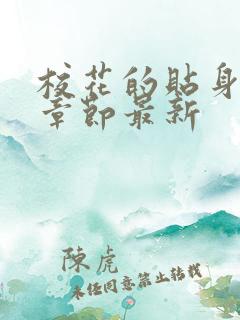 校花的贴身
章节最新
陳虎
未经同意禁止转载